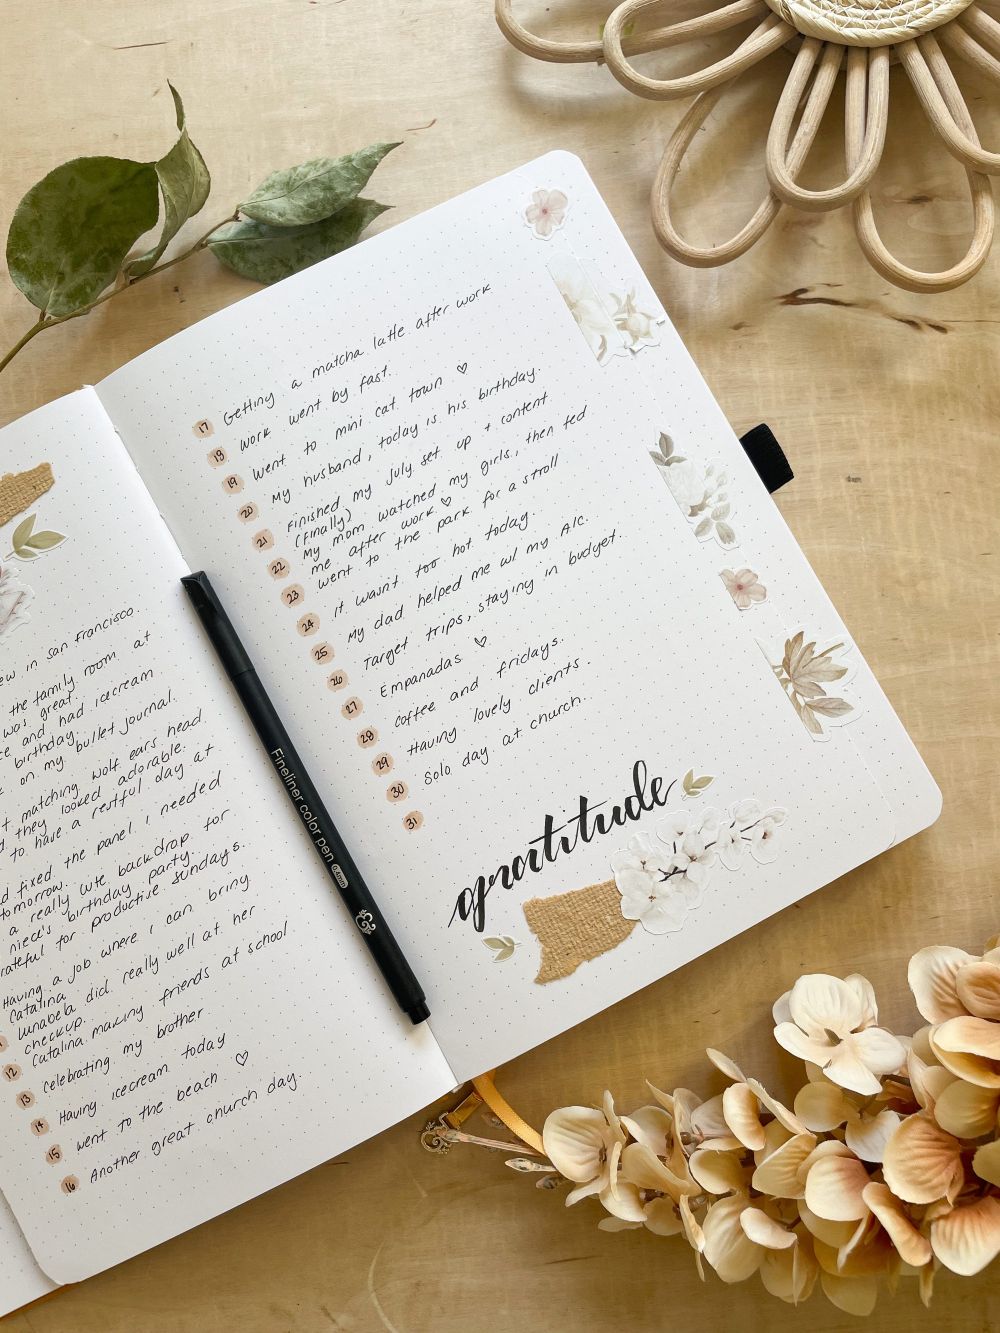 ew in San Francisco.
the family room at
was great.
e and had icecream
birthday.
on my bullet journal.
t matching wolf ears head
d they looked adorable.
to have a restful day at
d fixed the panel I needed
tomorrow.
a really cute backdrop for
niece's birthday party.
rateful for productive Sundays.
Having a job where I can bring
Catalina
Lunabela did really well at her
checkup.
12 Catalina making friends at school
13 Celebrating my brother
14 Having icecream today
15 Went to the beach ♡
16 Another great church day.
17 Getting a matcha latte after work
18 Work went by fast.
19 Went to mini cat town ♡
20 My husband, today is his birthday.
21 Finished my July set up + content
(Finally)
22 My mom watched my girls, then fed
me after work ♡
23 Went to the park for a stroll
24 It wasn't too hot today.
25 My dad helped me w/ my A/C.
26 Target trips, staying in budget.
27 Empanadas ♡
28 Coffee and Fridays.
29 Having lovely clients.
30 Solo day at church.
31
gratitude
Fineliner color pen 0.4mm